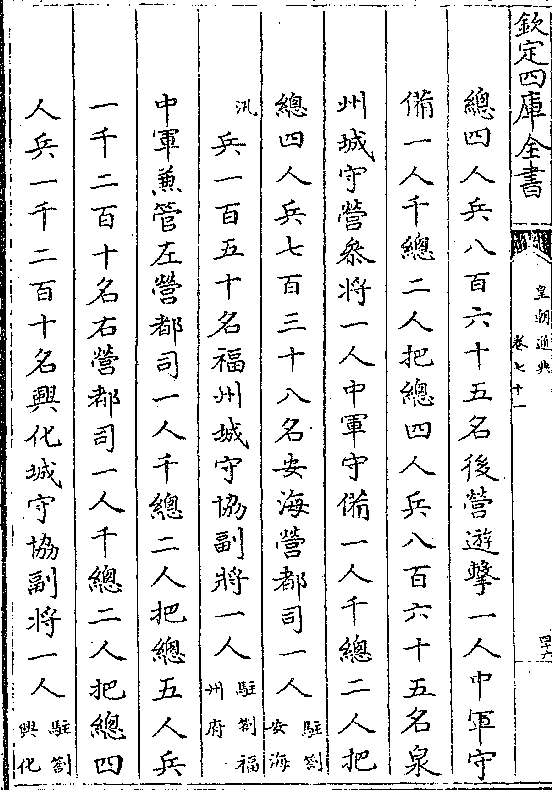 欽定四庫全書
皇朝通典
卷七十一
總四人兵八百六十五名後營遊擊一人中軍守
備一人千總二人把總四人兵八百六十五名泉
州城守營叅將一人中軍守備一人千總二人把
總四人兵七百三十八名安海營都司一人駐劄安海
汛兵一百五十名福州城守協副將一人駐劄福州府
中軍兼管左營都司一人千總二人把總五人兵
一千二百十名右營都司一人千總二人把總四
人兵一千二百十名興化城守協副將一人駐劄興化